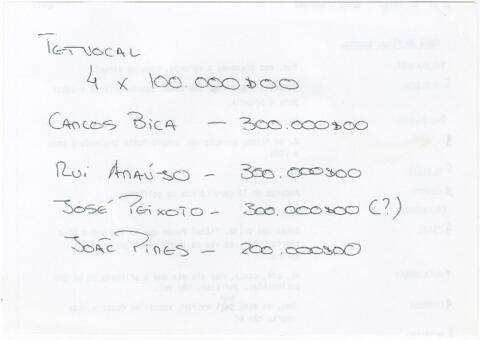 TETVOCAL
4 x 100.000$00
CARLOS BICA — 300.000$00
RUI ARAÚJO — 300.000$00
JOSÉ PEIXOTO — 300.000$00 (?)
JOÃO PIRES — 200.000$00